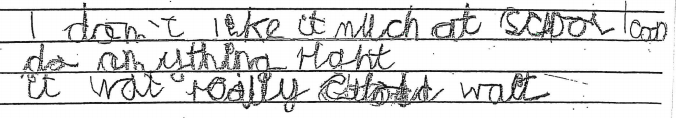 I don't like it much at SCHOOL I can
do anything right
it wat really walt